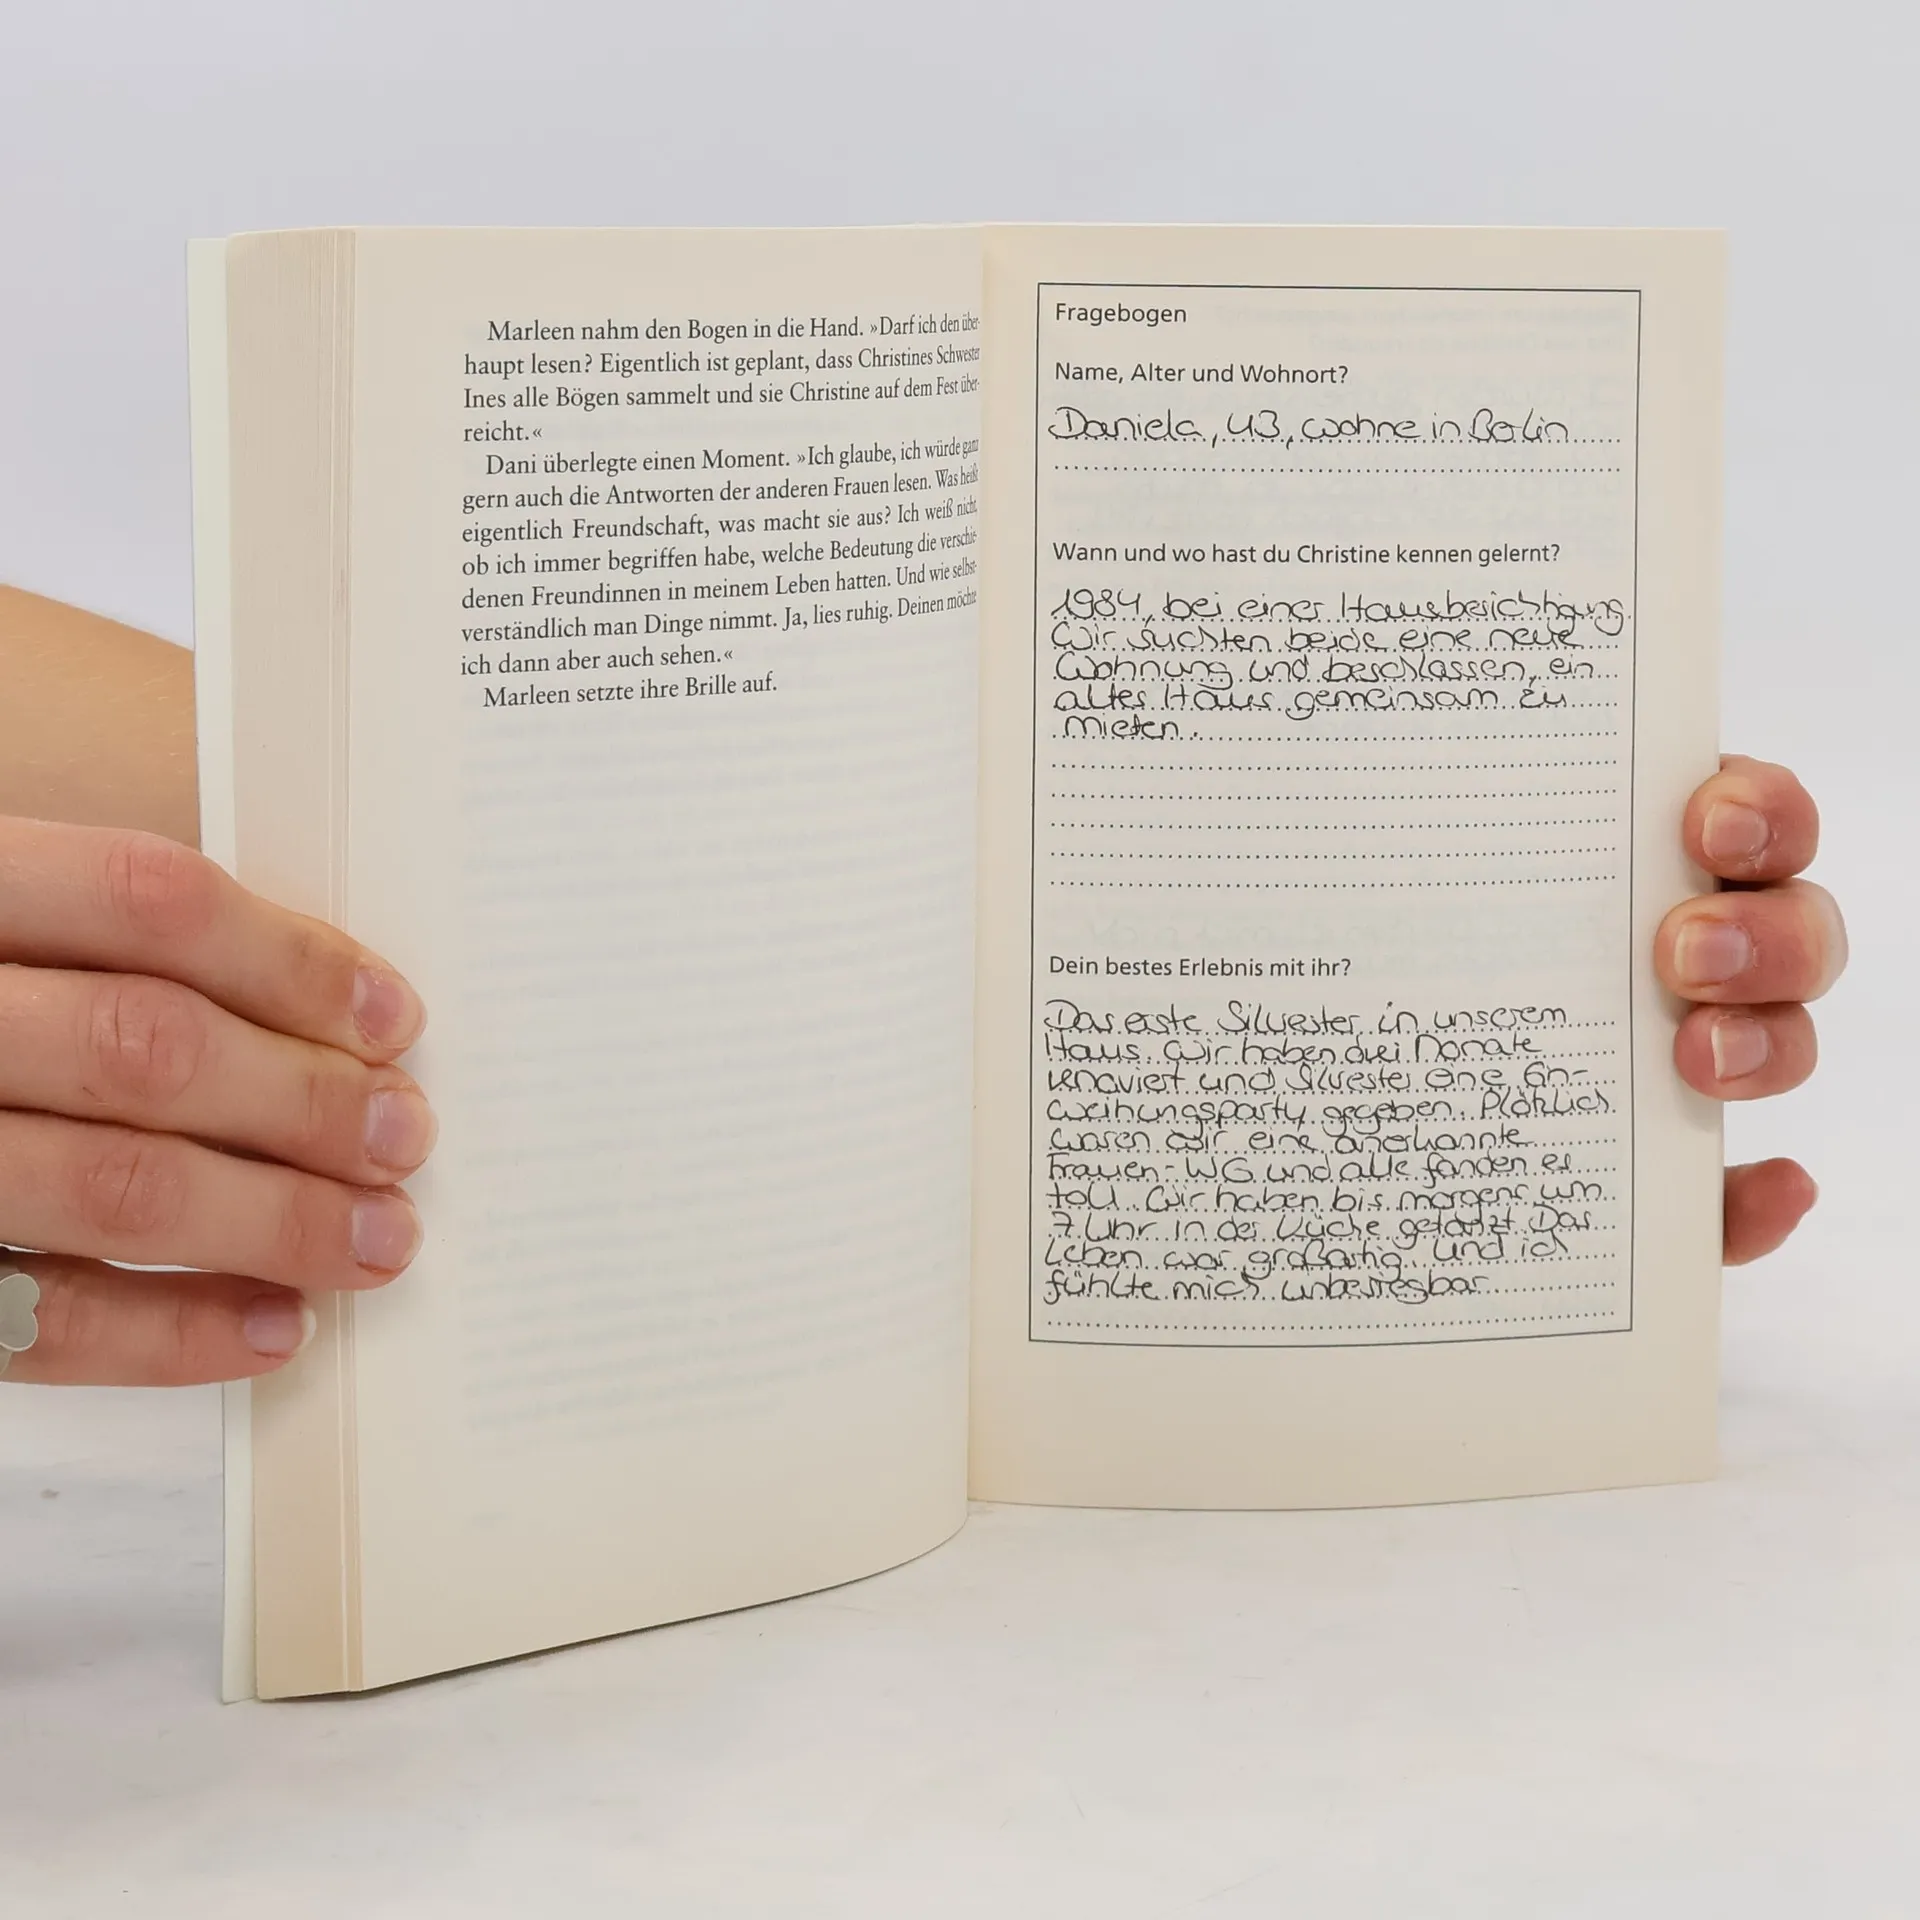 Marleen nahm den Bogen in die Hand. »Darf ich den über-
haupt lesen? Eigentlich ist geplant, dass Christines Schwester
Ines alle Bögen sammelt und sie Christine auf dem Fest über-
reicht.«
Dani überlegte einen Moment. »Ich glaube, ich würde ganz
gern auch die Antworten der anderen Frauen lesen. Was heißt
eigentlich Freundschaft, was macht sie aus? Ich weiß nicht,
ob ich immer begriffen habe, welche Bedeutung die verschie-
denen Freundinnen in meinem Leben hatten. Und wie selbst-
verständlich man Dinge nimmt. Ja, lies ruhig. Deinen möchte
ich dann aber auch sehen.«
Marleen setzte ihre Brille auf.
Fragebogen
Name, Alter und Wohnort?
Daniela, 43, wohne in Berlin
Wann und wo hast du Christine kennen gelernt?
1984, bei einer Hausbesichtigung.
Wir suchten beide eine neue
Wohnung und beschlossen, ein
altes Haus gemeinsam zu
mieten.
Dein bestes Erlebnis mit ihr?
Das erste Silvester in unserem
Haus. Wir haben drei Monate
renoviert und Silvester eine Ein-
weihungsparty gegeben. Plötzlich
waren wir eine anerkannte
Frauen-WG und alle fanden es
toll. Wir haben bis morgens um
7 Uhr in der Küche getanzt. Das
Leben war großartig und ich
fühlte mich unbesiegbar.